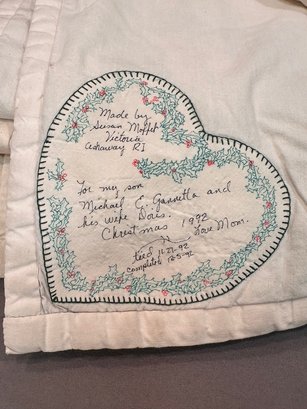 Made by
Susan Moffit
Victoria
Ashaway RI
For my son
Michael C. Giannetta and
his wife Doris.
Christmas 1992
Love Mom.
tied 11-27-92
completed 12-5-92